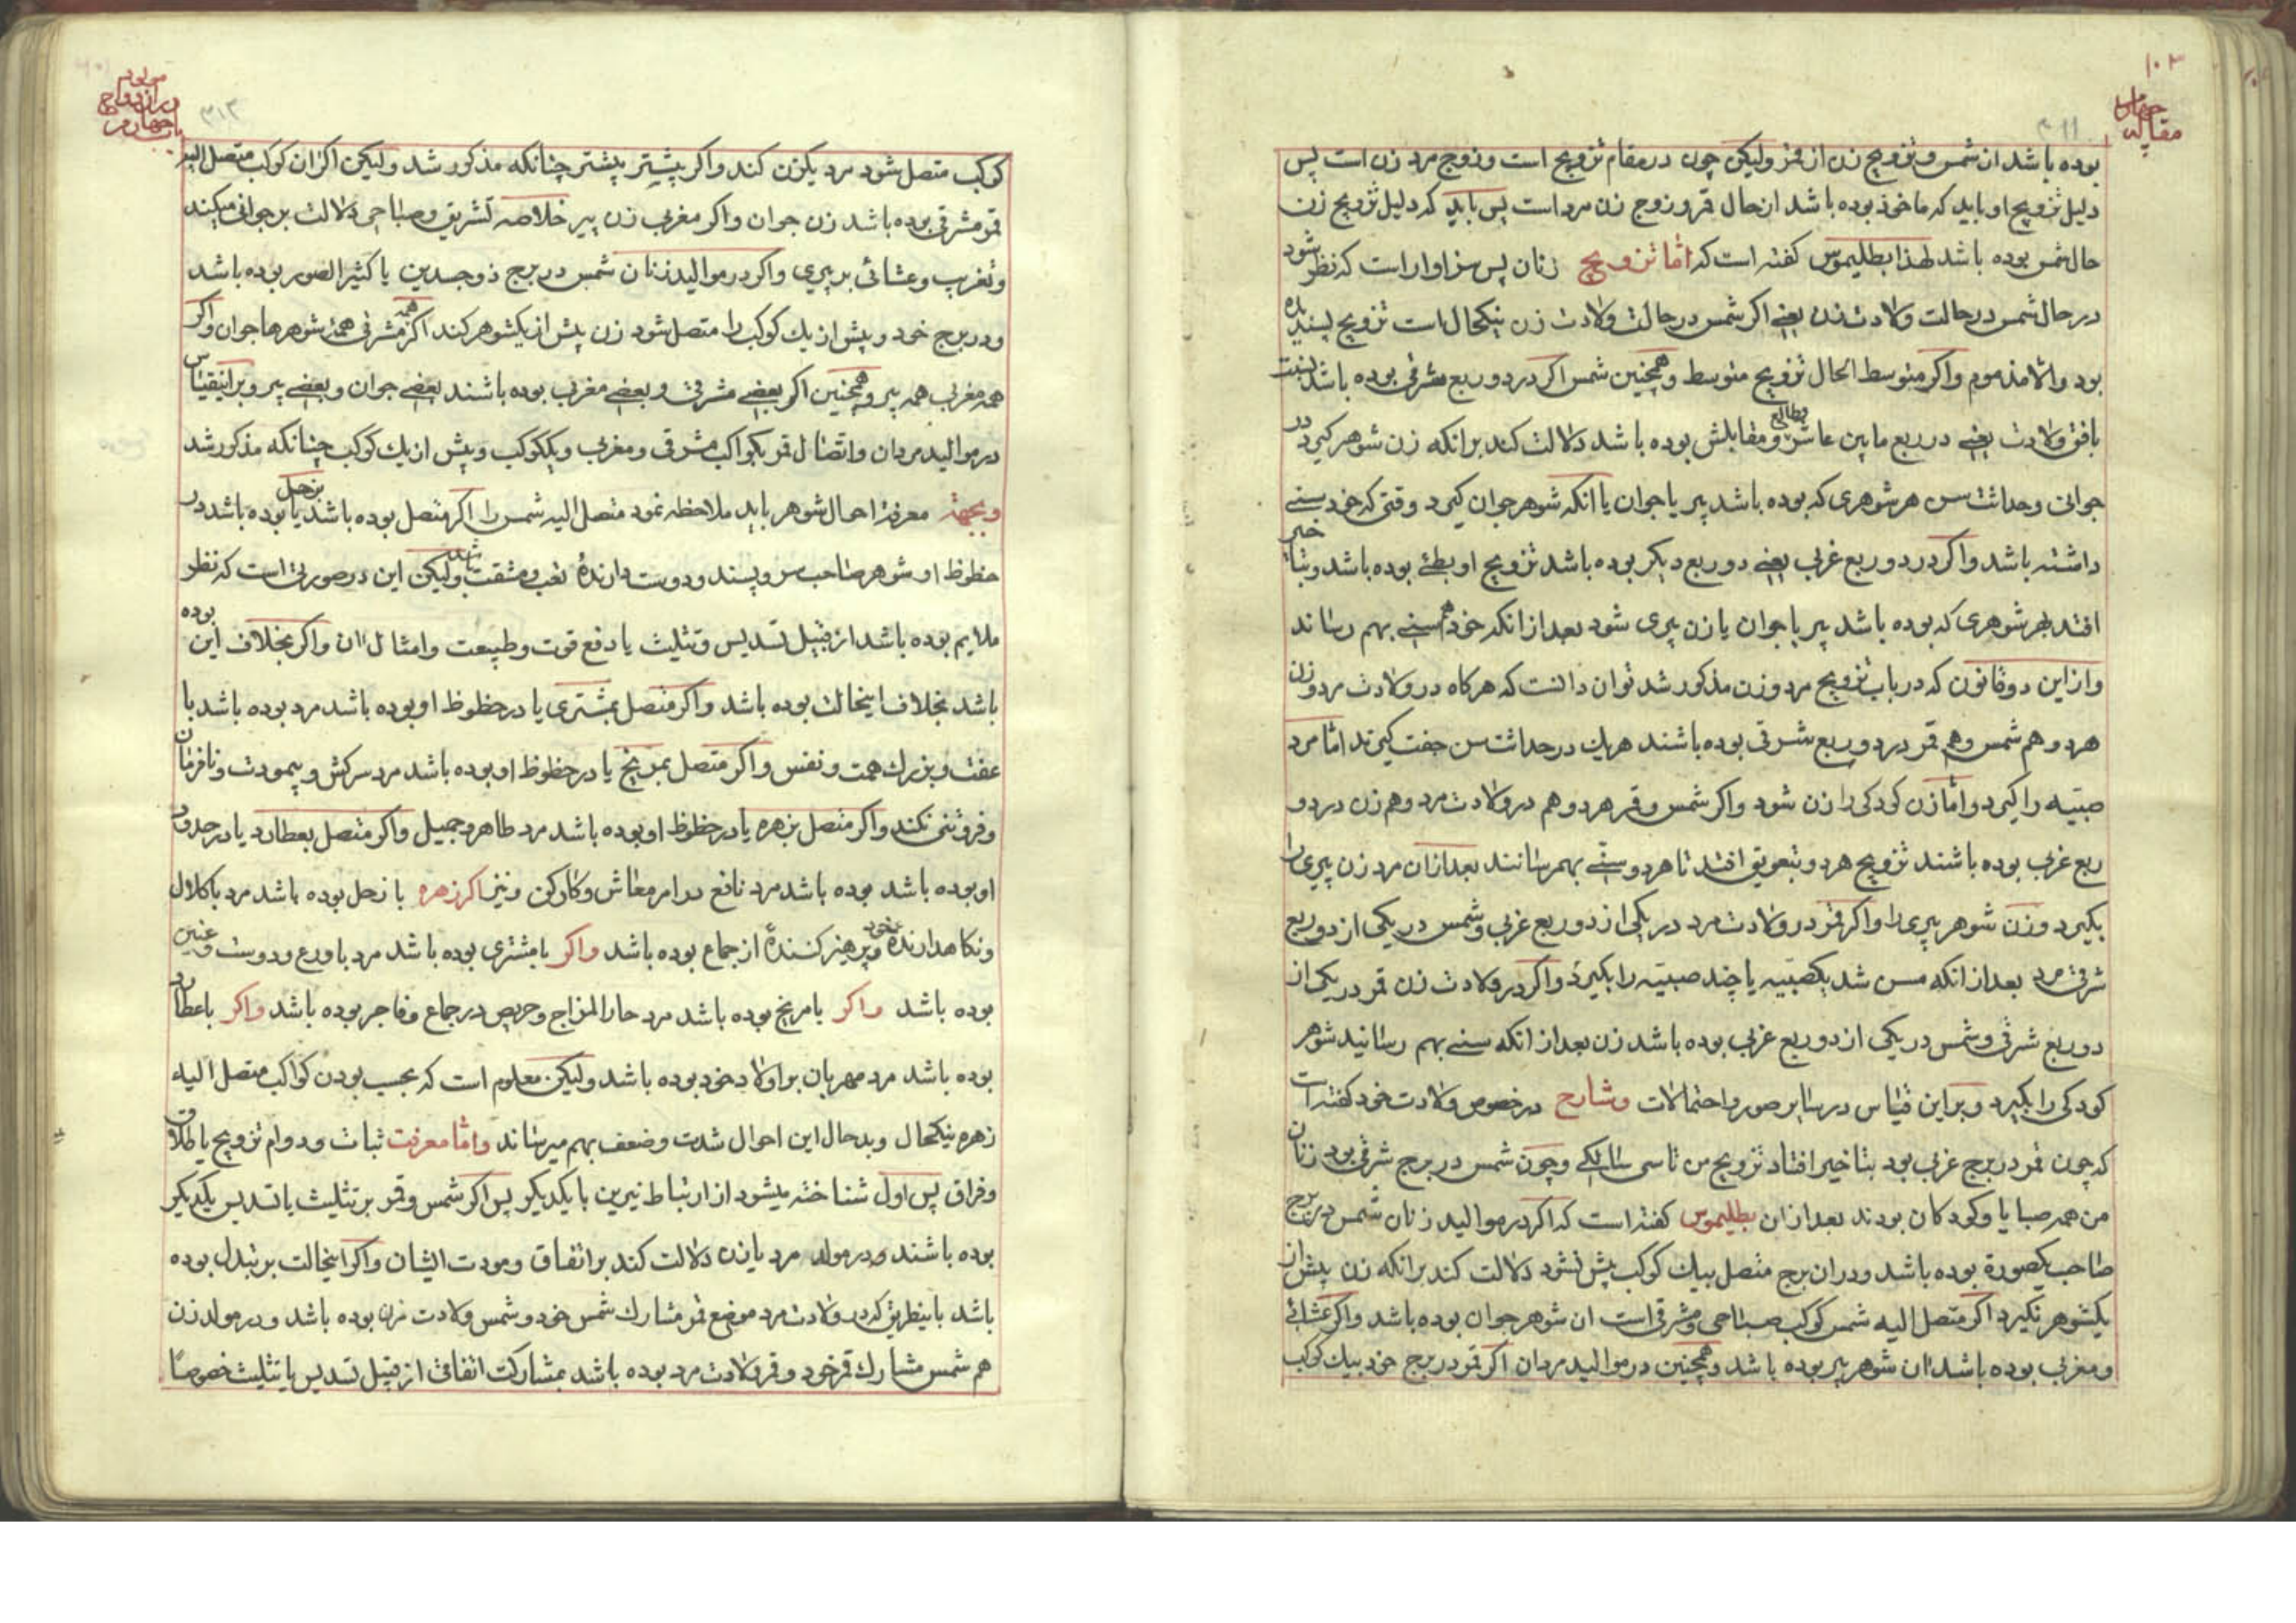 ١٠٣
مقاله چهارم
٣١١
بوده باشد ان شمس و تزویج زن از قمر ولیکن چون در مقام تزویج است و زوج مرد زن است پس
دلیل تزویج او باید که ماخوذ بوده باشد از حال قمر و زوج زن مرد است پس باید که دلیل تزویج زن
حال شمس بوده باشد لهذا بطلیموس کفته است که اما تزویج زنان پس سزاوار است که نظر شود
در حال شمس در حالت ولادت زن یعنے اکر شمس در حالت ولادت زن نیکحال است تزویج پسندیده
بود والا مذموم واکر متوسط الحال تزویج متوسط و همچنین شمس اکر در دو ربع مشرقی بوده باشد نسبت
بافق ولادت یعنے در ربع مابین عاشر و طالع و مقابلش بوده باشد دلالت کند برانکه زن شوهر کیرد در
جوانی وحداثت سن هر شوهری که بوده باشد پیر یا جوان یا انکه شوهر جوان کیرد وقتی که خود سنے
داشته باشد واکر در دو ربع غربی یعنے دو ربع دیکر بوده باشد تزویج او بطئ بوده باشد وبتاخیر
افتد بهر شوهری که بوده باشد پیر یا جوان یا زن پیری شود بعد از انکه خود هم سنے بهم رساند
واز این دو قانون که در باب تزویج مرد وزن مذکور شد توان دانست که هرکاه در ولادت مرد وزن
هر دو هم شمس وهم قمر در دو ربع شرقی بوده باشند هریك در حداثت سن جفت کیرند اما مرد
صبیه را کیرد واما زن کودکی را زن شود واکر شمس وقمر هر دو هم در ولادت مرد وهم زن در دو
ربع غربی بوده باشند تزویج هر دو بتعویق افتد تا هر دو سنّے بهم رسانند بعد ازان مرد زن پیری را
بکیرد وزن شوهر پیری را واکر قمر در ولادت مرد در یکی از دو ربع غربی وشمس در یکی از دو ربع
شرقی مرد بعد از انکه مسن شد یکصبیه یا چند صبیه را بکیرد واکر در ولادت زن قمر در یکی از
دو ربع شرقی وشمس در یکی از دو ربع غربی بوده باشد زن بعد از انکه سنے بهم رسانید شوهر
کودکی را بکیرد وبر این قیاس در سایر صور واحتمالات وشارح در خصوص ولادت خود کفته است
که چون قمر در برج غربی بود بتاخیر افتاد تزویج من تا سی سالکے وچون شمس در برج شرقی بود زنان
من همه صبایا وکودکان بودند بعد ازان بطلیموس کفته است که اکر در موالید زنان شمس در برج
صاحب یکصورة بوده باشد ودران برج متصل بیك کوکب پیش نشود دلالت کند برانکه زن پیش از
یکشوهر نکیرد اکر متصل الیه شمس کوکب صباحی ومشرقی است ان شوهر جوان بوده باشد واکر عشائے
ومغربی بوده باشد ان شوهر پیر بوده باشد وهمچنین در موالید مردان اکر قمر در برج خود بیك کوکب
مولود
در ازدواج
باب چهارم
٣١٢
کوکب متصل شود مرد یکزن کند واکر بیشتر بیشتر چنانکه مذکور شد ولیکن اکر ان کوکب متصل الیه
قمر مشرقی بوده باشد زن جوان واکر مغربی زن پیر خلاصه تشریق وصباحی دلالت بر جوانی میکند
وتغریب وعشائی بر پیری واکر در موالید زنان شمس در برج ذو جسدین یا کثیر الصور بوده باشد
ودر برج خود وبیش از یك کوکب را متصل شود زن بیش از یکشوهر کند اکر همه مشرقی همه شوهرها جوان واکر
همه مغربی همه پیر وهمچنین اکر بعضے مشرقی وبعضے مغربی بوده باشند بعضے جوان وبعضے پیر وبراینقیاس
در موالید مردان واتصال قمر بکواکب مشرقی ومغربی وبیککوکب وبیش از یك کوکب چنانکه مذکور شد
وبجهة معرفة احوال شوهر باید ملاحظه نمود متصل الیه شمس را اکر متصل بزحل بوده باشد یا بوده باشد در
حظوظ او شوهر صاحب سن وپسند ودوست دارنده تعب ومشقت باشد ولیکن این در صورتی است که نظر
ملایم بوده باشد از قبیل تسدیس وتثلیث یا دفع قوت وطبیعت وامثال ان واکر بخلاف این بوده
باشد بخلاف اینحالت بوده باشد واکر متصل بمشتری یا در حظوظ او بوده باشد مرد بوده باشد با
عفت وبزرك همت ونفس واکر متصل بمریخ یا در حظوظ او بوده باشد مرد سرکش وبیمودت ونافرمان
وفروتنی نکند واکر متصل بزهره یا در حظوظ او بوده باشد مرد طاهر وجمیل واکر متصل بعطارد یا در حدود
او بوده باشد بوده باشد مرد نافع در امر معاش وکارکن ونیز اکر زهره با زحل بوده باشد مرد با کلال
ونکاهدارنده خود وپرهیز کنندهٔ از جماع بوده باشد واکر با مشتری بوده باشد مرد با ورع ودوست وغنین
بوده باشد واکر با مریخ بوده باشد مرد حار المزاج وحریص در جماع وفاجر بوده باشد واکر با عطارد
بوده باشد مرد مهربان بر اولاد خود بوده باشد ولیکن معلوم است که بحسب بودن کواکب متصل الیه
زهره نیکحال وبدحال این احوال شدت وضعف بهم میرساند واما معرفت ثبات ودوام تزویج یا طلاق
وفراق پس اول شناخته میشود از ارتباط نیرین با یکدیکر پس اکر شمس وقمر بر تثلیث یا تسدیس یکدیکر
بوده باشند ودر مولد مرد یا زن دلالت کند بر اتفاق ومودت ایشان واکر اینحالت بر تبدل بوده
باشد باینطریق که در ولادت مرد موضع قمر مشارك شمس خود وشمس ولادت زن بوده باشد ودر مولد زن
هم شمس مشارك قمر خود وقمر ولادت مرد بوده باشد بمشارکت اتفاقی از قبیل تسدیس یا تثلیث خصوصًا